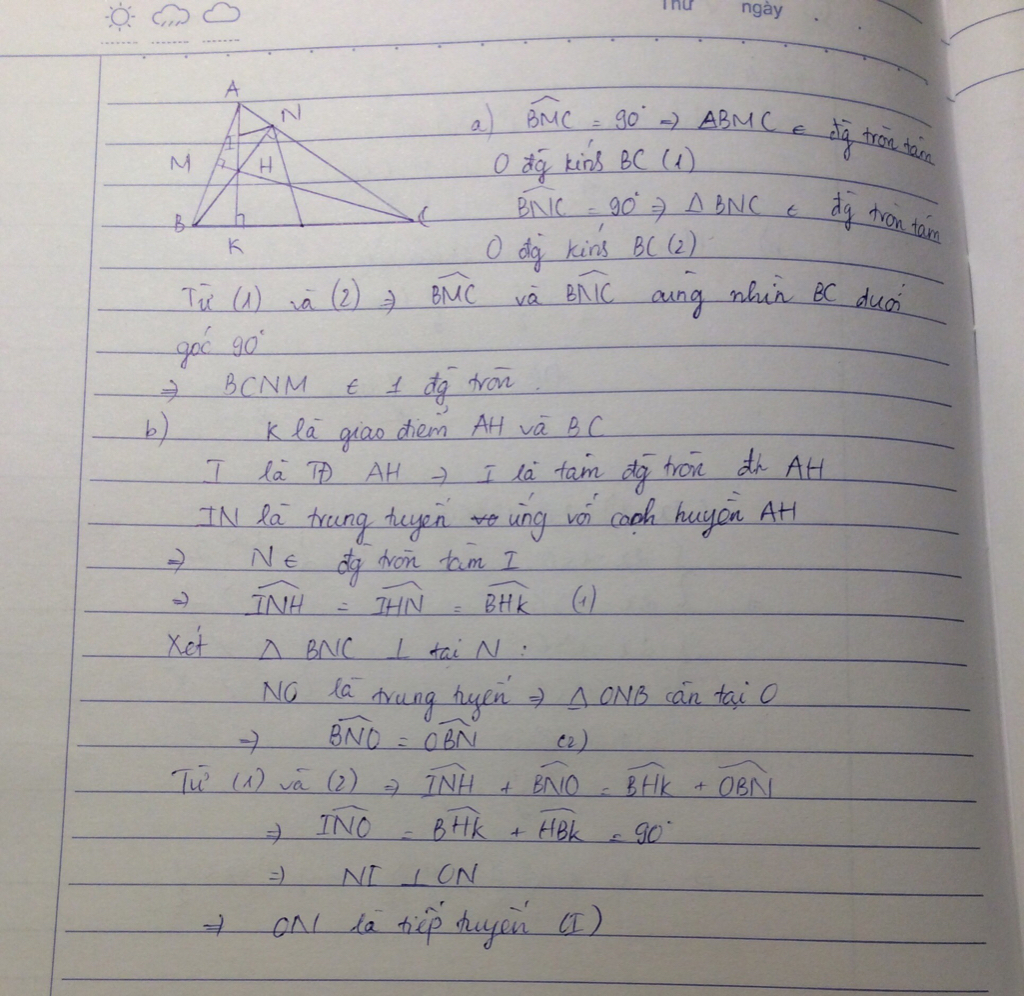 Thứ ngày
A
N
I
M
H
B
C
K
a) BMC = 90° => ΔBMC ∈ đg tròn tâm
O đg kính BC (1)
BNC = 90° => Δ BNC ∈ đg tròn tâm
O đg kính BC (2)
Từ (1) và (2) => BMC và BNC cùng nhìn BC dưới
góc 90°
=> BCNM ∈ 1 đg tròn.
b) K là giao điểm AH và BC
I là TĐ AH => I là tâm đg tròn đk AH
IN là trung tuyến ứng với cạnh huyền AH
=> N ∈ đg tròn tâm I
=> INH = IHN = BHK (1)
Xét Δ BNC ⊥ tại N :
NO là trung tuyến => Δ ONB cân tại O
=> BNO = OBN (2)
Từ (1) và (2) => INH + BNO = BHK + OBN
=> INO = BHK + HBK = 90°
=> NI ⊥ ON
=> ON là tiếp tuyến (I)